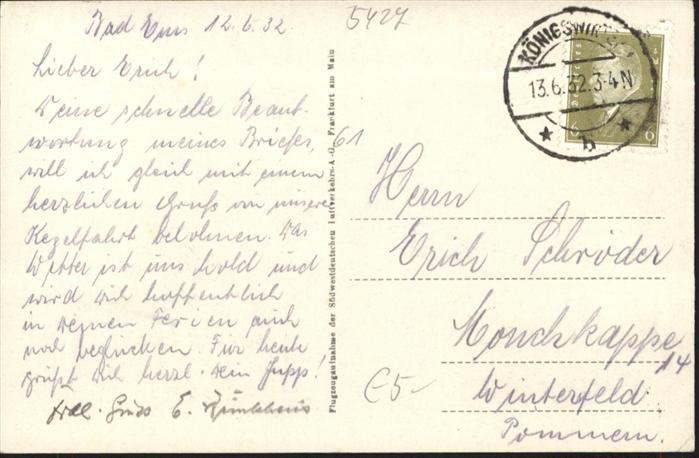 Bad Ems 12.6.32
5427
Lieber Erich!
Deine schnelle Beant-
wortung meines Briefes,
will ich gleich mit einem
herzlichen Gruß von unserer
Kegelfahrt belohnen. Das
Wetter ist uns hold und
wird dich hoffentlich
in deinen Ferien auch
noch beglücken. Für heute
grüßt dich herzl. dein Jupp!
Gruss E.
61
Flugzeugaufnahme der Südwestdeutschen Luftverkehrs-A.-G. Frankfurt am Main
KÖNIGSWINTER
13.6.32.3-4N
* b *
6 6
Herrn
Erich Schröder
Monchkappe
14
Winterfeld.
Pommern.
€5-